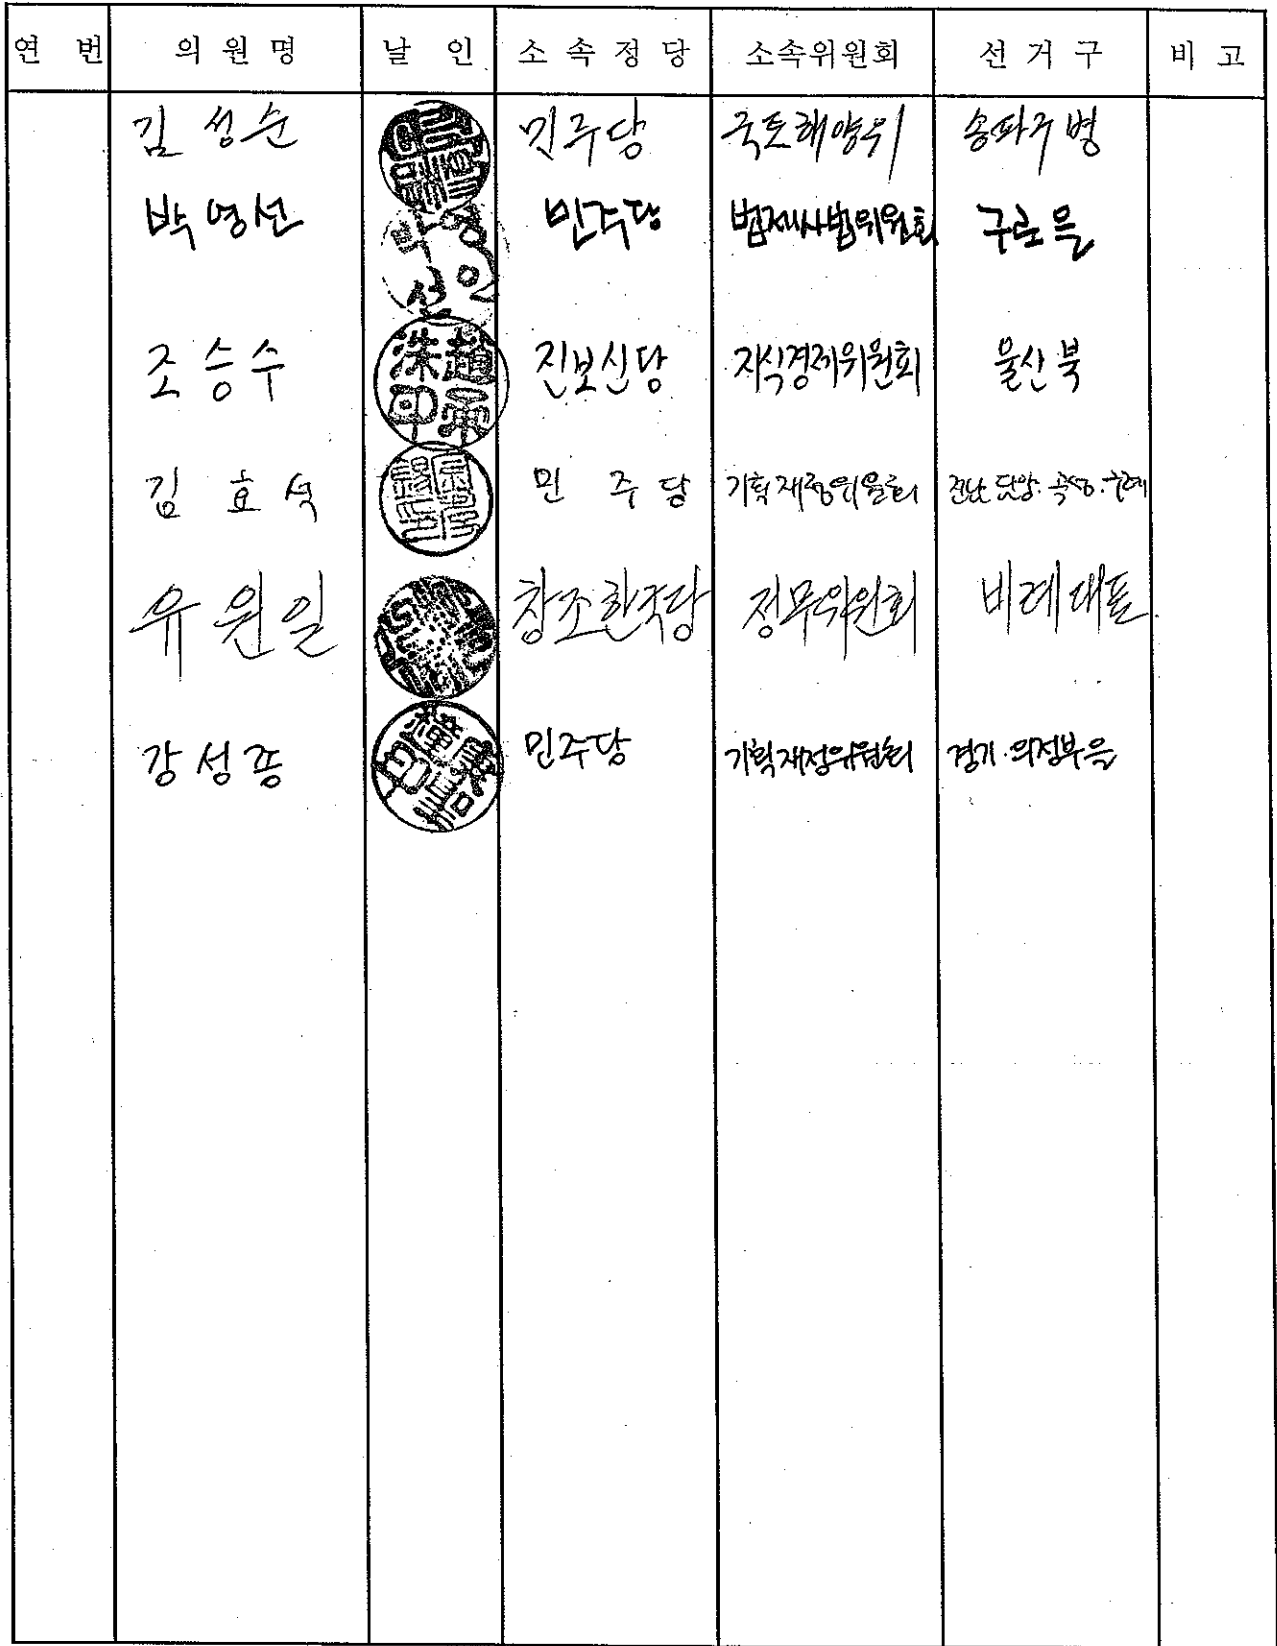 연 번 의 원 명 날 인 소 속 정 당 소속위원회 선 거 구 비 고
김 성순 민주당 국토해양위 송파구병
박영선 민주당 법제사법위원회 구로을
박영선인
조승수 진보신당 지식경제위원회 울산 북
趙承洙印
김 효 석 민 주 당 기획재정위원회 전남 담양·곡성·구례
유원일 창조한국당 정무위원회 비례대표
강성종 민주당 기획재정위원회 경기·의정부을